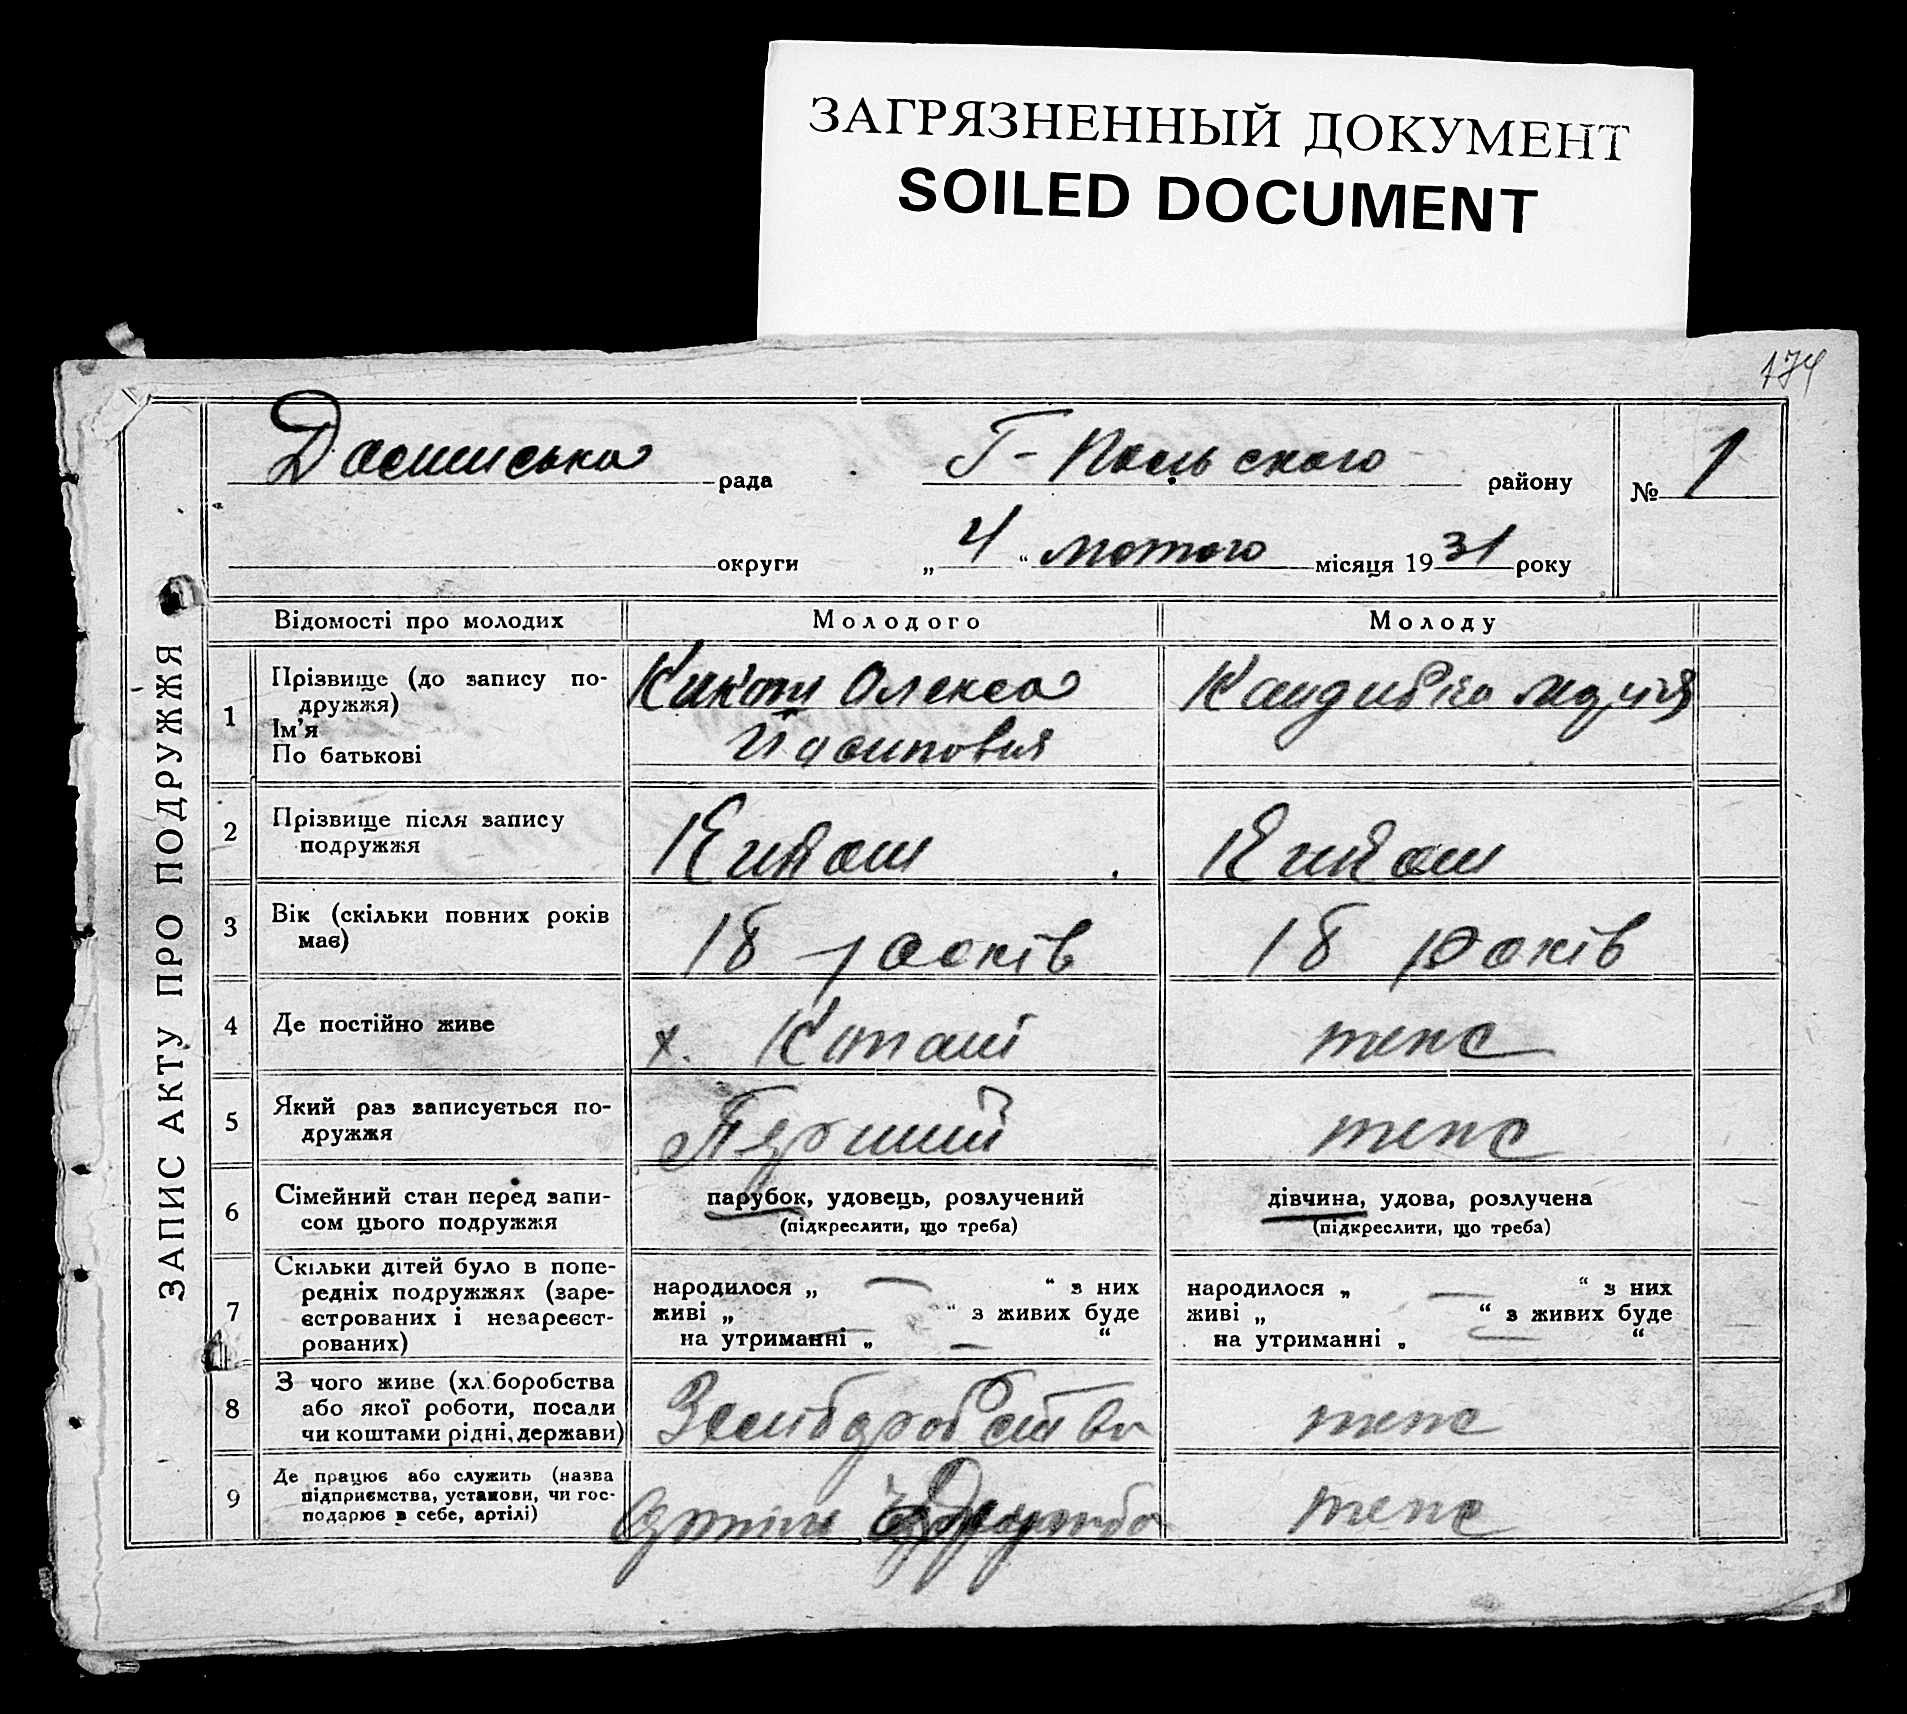 ЗАГРЯЗНЕННЫЙ ДОКУМЕНТ
SOILED DOCUMENT
174
ЗАПИС АКТУ ПРО ПОДРУЖЖЯ
рада Г- Польского району № 1
округи „ 4 “ лютого місяця 1931 року
Відомості про молодих Молодого Молоду
1 Прізвище (до запису по-
дружжя)
Ім'я
По батькові
Олекса
Йосипович
2 Прізвище після запису
подружжя
3 Вік (скільки повних років
має)
18 років 18 років
4 Де постійно живе х. тепс
5 Який раз записується по-
дружжя
Перший тепс
6 Сімейний стан перед запи-
сом цього подружжя
парубок, удовець, розлучений
(підкреслити, що треба)
дівчина, удова, розлучена
(підкреслити, що треба)
7 Скільки дітей було в попе-
редніх подружжях (заре-
єстрованих і незареєст-
рованих)
народилося „ — “ з них
живі „ — “ з живих буде
на утриманні „ — “
народилося „ — “ з них
живі „ — “ з живих буде
на утриманні „ “
8 З чого живе (хліборобства
або якої роботи, посади
чи коштами рідні, держави)
тепс
9 Де працює або служить (назва
підприємства, установи, чи гос-
подарює в себе, артілі)
тепс